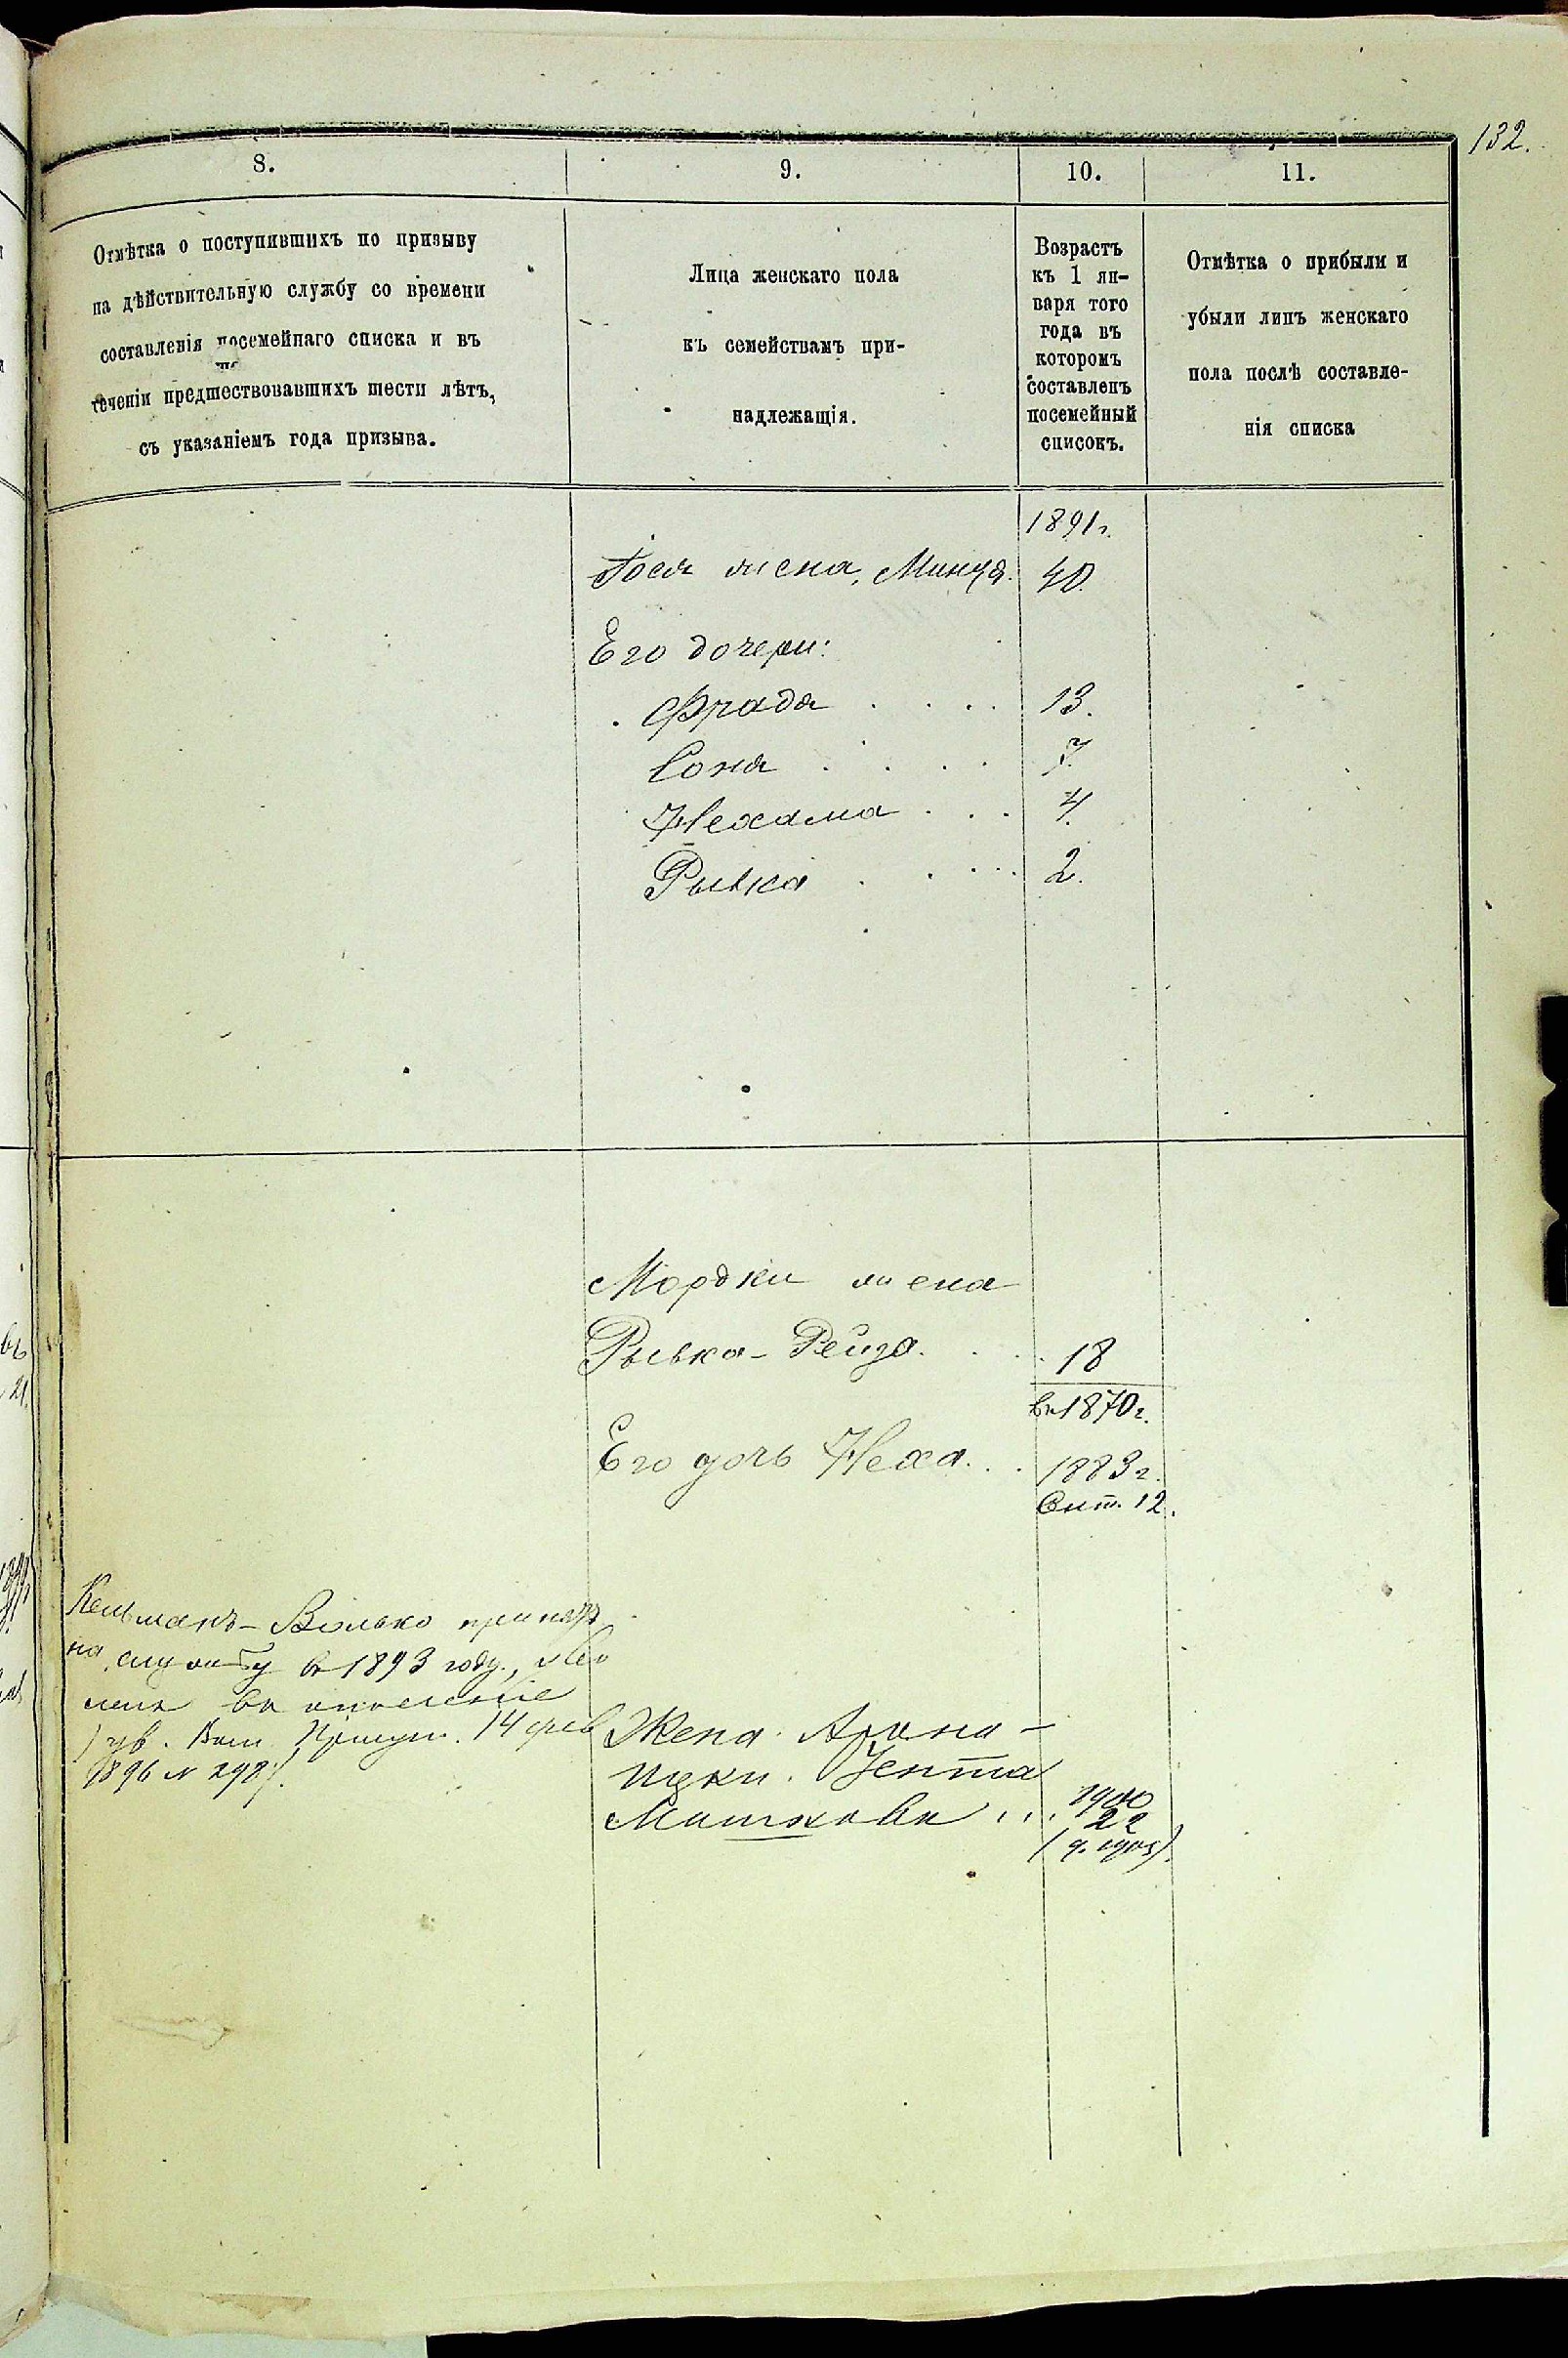 132.
8.
9.
10.
11.
Отмѣтка о поступившихъ по призыву
на дѣйствительную службу со времени
составленія посемейнаго списка и въ
теченіи предшествовавшихъ шести лѣтъ,
съ указаніемъ года призыва.
Лица женскаго пола
къ семействамъ при-
надлежащія.
Возрастъ
къ 1 ян-
варя того
года въ
которомъ
составленъ
посемейный
списокъ.
Отмѣтка о прибыли и
убыли лицъ женскаго
пола послѣ составле-
нія списка
1891г.
жена, Минця. 40.
Его дочери:
Фрада .... 13.
Соня .... 7.
Нехама ... 4.
Рывка .... 2.
Мордки жена
Рывка-Рейза. ... 18
въ 1870г.
Его дочь Неха... 1883г.
12.
Кельманъ-Волько принятъ
на службу въ 1893 году,
въ
14 фев
1896 № 298).
Жена Арона-
Ицки. Іента
... 1900
22